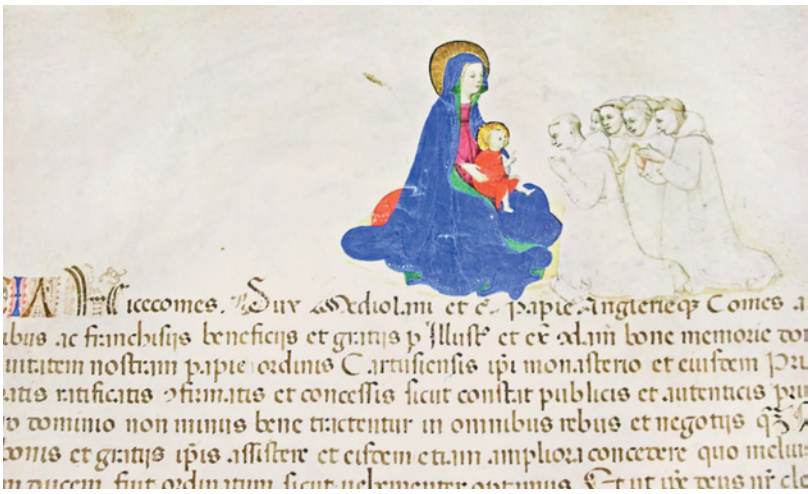 Vicecomes. Dux Mediolani et c̄. Papie Anglerieq̄ Comes a
ibus ac franchisijs beneficijs et gratijs p Illust̄ et ex̄ dn̄am bone memorie don
uitatem nostram papie ordinis Cartusiensis ip̄i monasterio et eiusdem Pri
atis ratificatis ꝯfirmatis et concessis sicut constat publicis et autenticis pri
o dominio non minus bene tractentur in omnibus rebus et negotijs
bonis et gratijs ip̄is assistere et eisdem etiam ampliora concedere quo melius
m ducem fiat ordinatum sicut uehementer optamus. Et ut deus nr̄